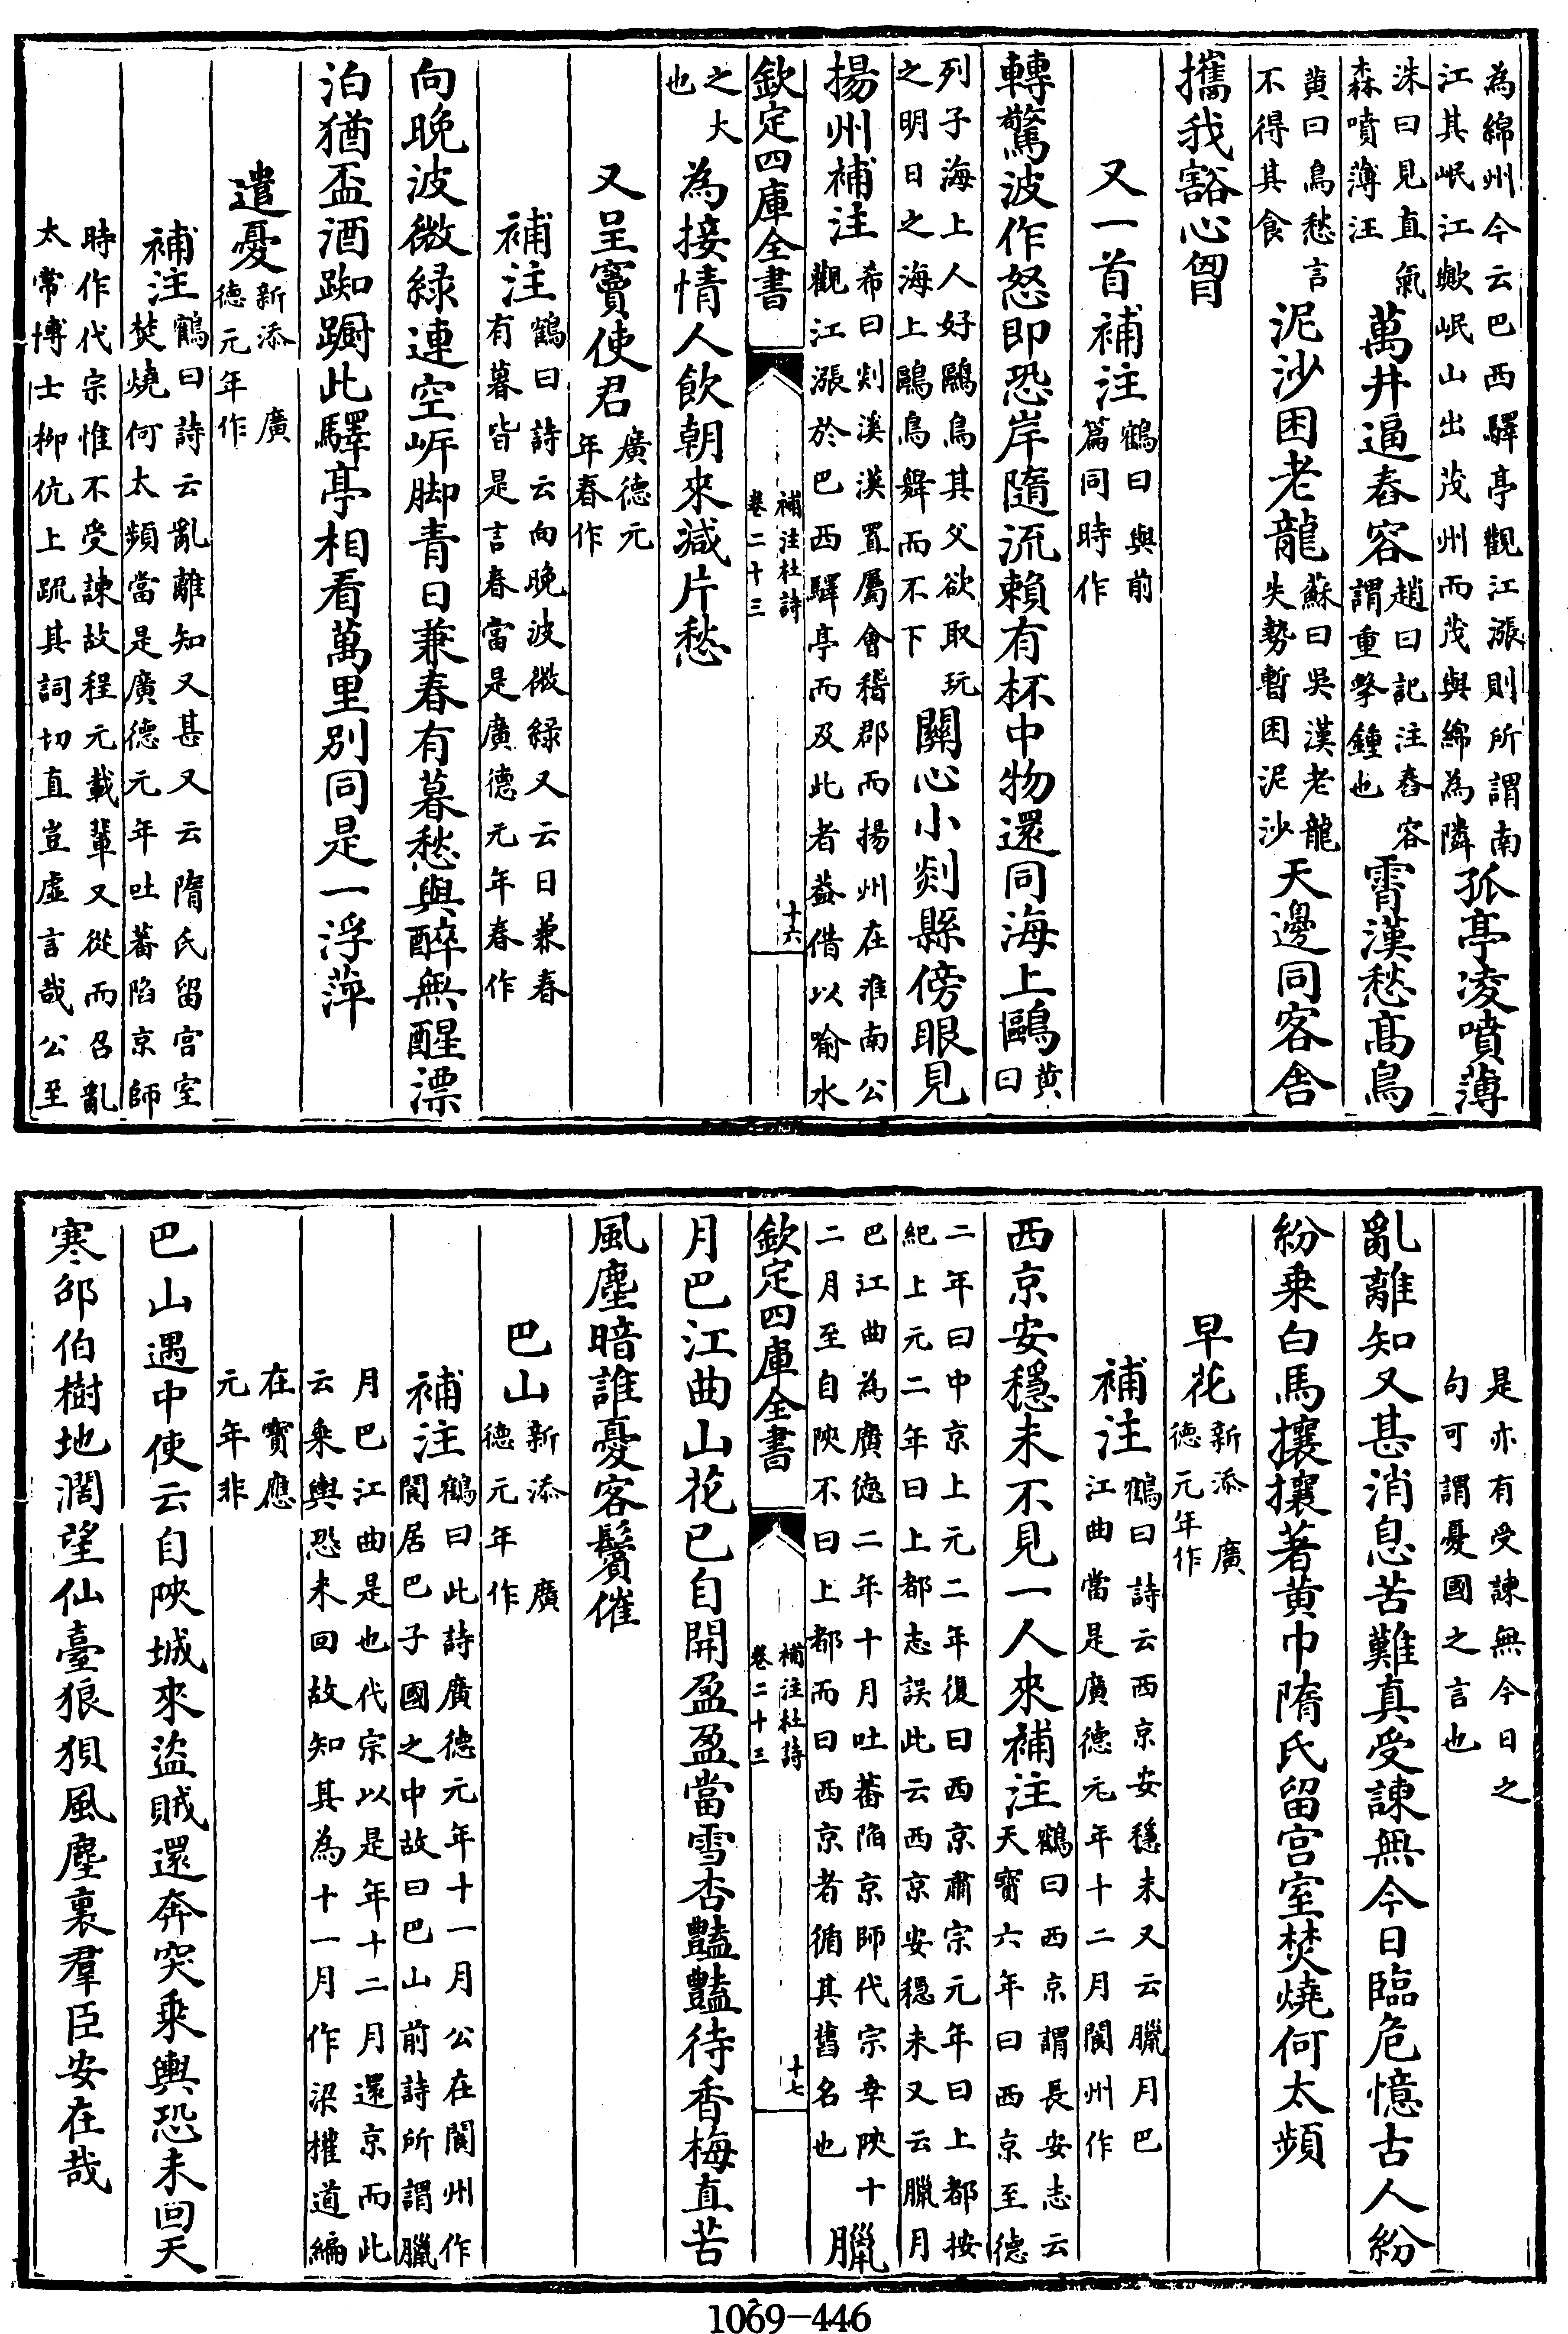 為綿州今云巴西驛亭觀江漲則所謂南江其岷江歟岷山出茂州而茂與綿為隣孤亭凌噴薄
洙曰見直氣森噴薄汪萬井逼舂容趙曰記注舂容謂重擊鍾也霄漢愁高鳥
黄曰鳥愁言不得其食泥沙困老龍蘇曰吳漢老龍失勢暫困泥沙天邊同客舍
攜我豁心胷
又一首補注鶴曰與前篇同時作
轉驚波作怒即恐岸隨流賴有杯中物還同海上鷗黄曰
列子海上人好鷗鳥其父欲取玩之明日之海上鷗鳥舞而不下關心小剡縣傍眼見
揚州補注希曰剡溪漢置屬會稽郡而揚州在淮南公觀江漲於巴西驛亭而及此者葢借以喻水
欽定四庫全書 補注杜詩 卷二十三 十六
之大也為接情人飲朝來減片愁
又呈竇使君廣德元年春作
補注鶴曰詩云向晚波微緑又云日兼春有暮皆是言春當是廣德元年春作
向晚波微緑連空岸脚青日兼春有暮愁與醉無醒漂
泊猶盃酒踟蹰此驛亭相看萬里别同是一浮萍
遣憂新添 廣德元年作
補注鶴曰詩云亂離知又甚又云隋氏留宫室焚燒何太頻當是廣德元年吐蕃陷京師
時作代宗惟不受諫故程元載輩又從而召亂太常博士柳伉上疏其詞切直豈虚言哉公至
是亦有受諫無今日之句可謂憂國之言也
亂離知又甚消息苦難真受諫無今日臨危憶古人紛
紛乗白馬攘攘著黄巾隋氏留宫室焚燒何太頻
早花新添 廣德元年作
補注鶴曰詩云西京安穩未又云臘月巴江曲當是廣德元年十二月閬州作
西京安穩未不見一人來補注鶴曰西京謂長安志云天寶六年曰西京至德
二年曰中京上元二年復曰西京肅宗元年曰上都按紀上元二年曰上都志誤此云西京安穩未又云臘月
巴江曲為廣德二年十月吐蕃陷京師代宗幸陜十二月至自陜不曰上都而曰西京者循其舊名也臘
欽定四庫全書 補注杜詩 卷二十三 十七
月巴江曲山花已自開盈盈當雪杏豔豔待香梅直苦
風塵暗誰憂客鬢催
巴山新添 廣德元年作
補注鶴曰此詩廣德元年十一月公在閬州作閬居巴子國之中故曰巴山前詩所謂臘
月巴江曲是也代宗以是年十二月還京而此云乗輿恐未回故知其為十一月作梁權道編
在寶應元年非
巴山遇中使云自陜城來盗賊還奔突乗輿恐未回天
寒邵伯樹地濶望仙臺狼狽風塵裏羣臣安在哉
1069-446